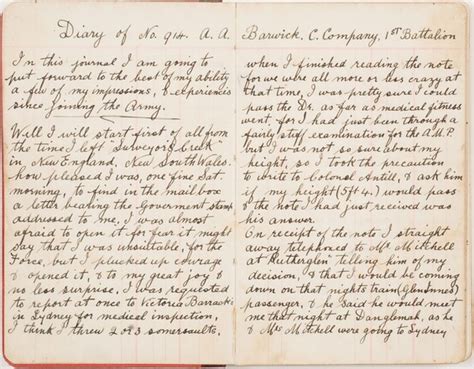 Diary of No. 914. A. A. Barwick. C. Company, 1st Battalion
In this journal I am going to
put forward to the best of my ability
a few of my impressions, & experiences
since joining the Army.
Well I will start first of all from
the time I left "Surveyors Creek"
in New England, New South Wales.
how pleased I was, one fine Sat
morning, to find in the mail box
a letter bearing the Goverment stamp
addressed to me, I was almost
afraid to open it for fear it might
say that I was unsuitable, for the
Force, but I plucked up courage
& opened it, & to my great joy &
no less surprise, I was requested
to report at once to Victoria Barracks
in Sydney for medical inspection,
I think I threw 2 or 3 somersaults,
when I finished reading the note
for we were all more or less crazy at
that time, I was pretty sure I could
pass the Dr. as far as medical fitness
went, for I had just been through a
fairly stiff examination for the A.M.P.
but I was not so sure about my
height, so I took the precaution
to write to Colonel Antill, & ask him
if my height (5ft 4.) would pass
& the note I had just received was
his answer.
On receipt of the note I straight
away telephoned to Mr Mitchell
at Rutherglen telling him of my
decision, & that I would be coming
down on that nights train (Glen Innes)
passenger, & he said he would meet
me that night at Danglemah, as he
& Mrs Mitchell were going to Sydney